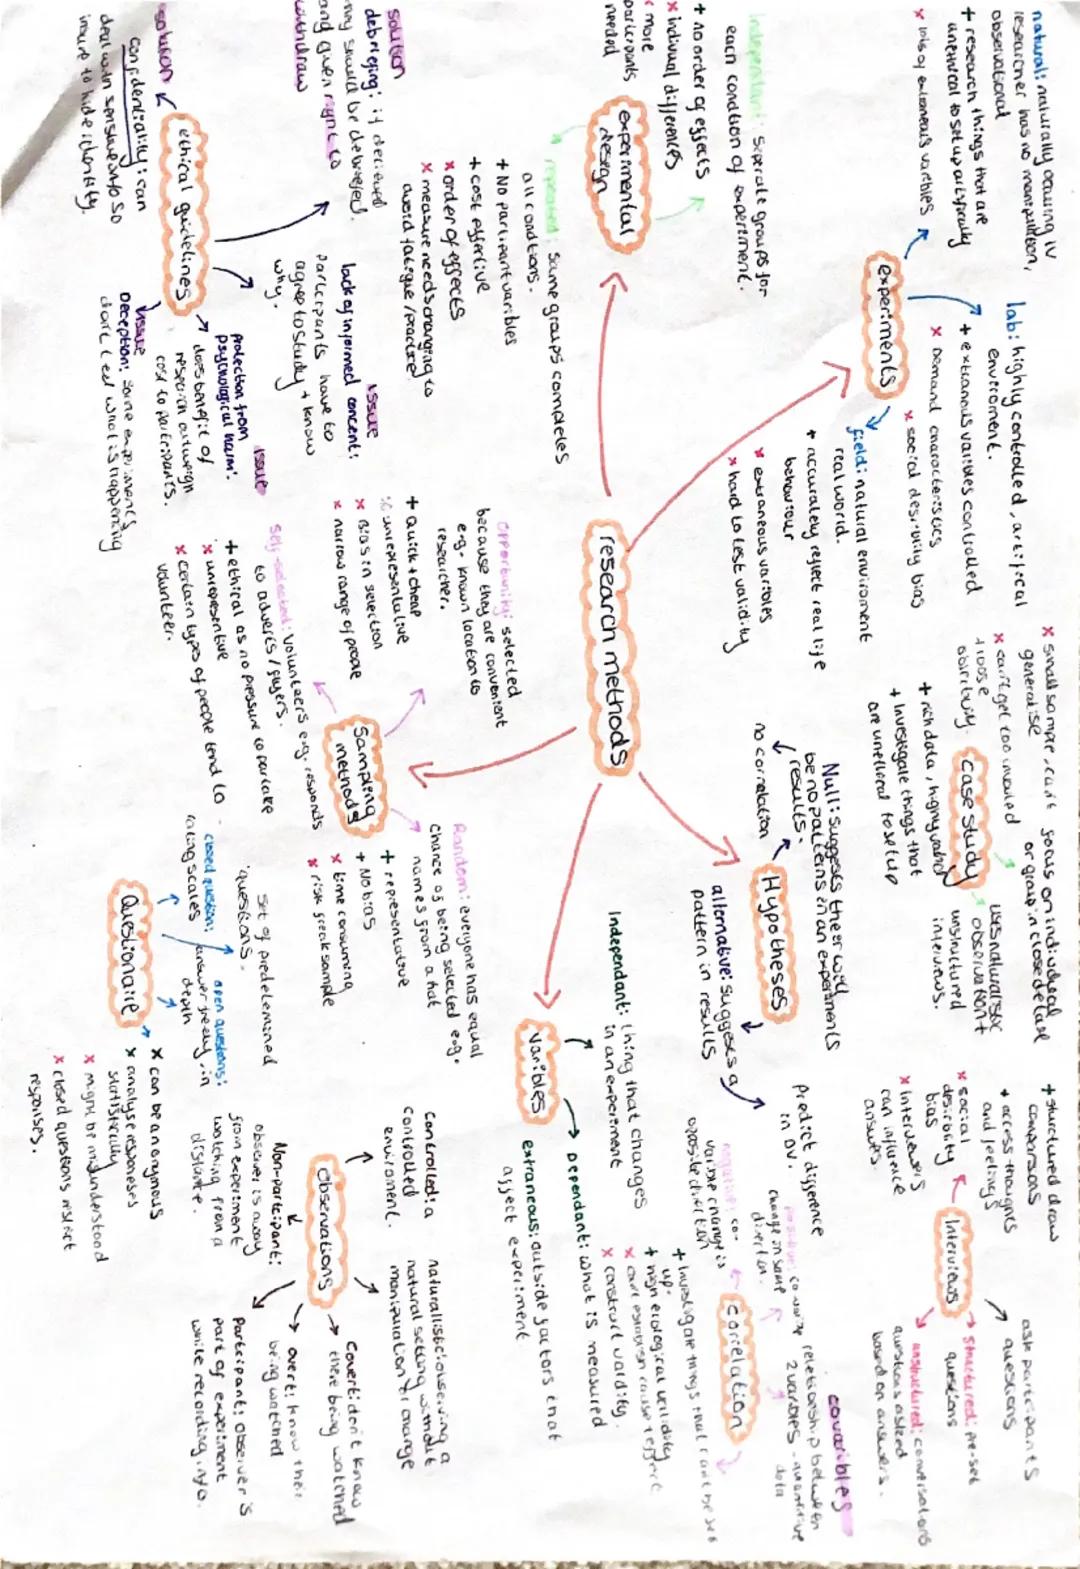 research methods
experiments
natural: naturally occuring IV
researcher has no manipulation,
observational
+ research things that are
unethical to set up artificially
x lots of extraneous varibles
lab: highly controlled, artifical
enviroment.
+ extranous varibles controlled
x Demand characteristics
x social desirability bias
field: natural enviroment
real world.
+ accurateley reflect real life
behaviour
x extraneous varibles
x hard to test validity
experimental
design
independant: seperate groups for
each condtion of experiment.
+ no order of effects
x indivual differences
x more
participants
needed
repeated: same groups completes
all conditions.
+ No participant variables
+ cost effective
x order of effects
x measure needs changing to
avoid fatigue/practise
case study
x small sample, can't
generalise
x can't get too involved
+ loose
objectivity.
focus on individual
or group in close detail
uses naturalistic
observation +
unstructured
interviews.
+ rich data, highly valid
+ Investigate things that
are unethical to set up
Hypotheses
Null: suggests there will
be no patterns in an experiments
results.
no correlation
alternative: suggests a
pattern in results
Predict difference
in DV.
Interviews
ask participants
questions
structured: pre-set
questions
unstructured: conversations
questions asked
based on answers.
+ structured draw
comparisons
+ access thoughts
and feelings
x social
desirability
bias
x Interviewers
can influence
answers.
correlation
covaribles
reletionship between
2 varibles - quantitive
data
positive: co-varible
change in same
direction.
negative: co-
varible change is
opposite direction
+ Investigate things that can't be set
up.
+ high ecological validity
x can't establish cause + effect
x construct validity.
varibles
Independant: thing that changes
in an experiment
Dependant: what is measured
extraneous: outside factors that
affect experiment
Sampling
methods
opportunity: selected
because they are convenient
e.g. known location to
researcher.
+ quick + cheap
x unrepresentative
x Bias in selection
x narrow range of people
Random: everyone has equal
chance of being selected e.g.
names from a hat
+ representative
+ No bias
x time consuming
x risk freak sample
self-selected: volunteers e.g. responds
to adverts / flyers.
+ ethical as no pressure to partake
x unrepresentive
x certain types of people tend to
volunteer.
ethical guidelines
solution
debriefing: if decieved
they should be debriefed.
and given right to
withdraw
issue
lack of informed concent:
participants have to
agree to study + know
why.
issue
protection from
psychological harm:
does benefit of
research outweigh
cost to participants.
issue
Deception: some experiments
don't tell what is happening
solution
confidentiality: can
deal with sensitive info so
insure to hide identity.
Questionaire
set of predetermined
questions.
closed question:
rating scales
open questions:
answer freely, in
depth
x can be anonymous
x analyse responeses
statistically
x might be misunderstood
x closed questions restrict
responses.
observations
Controlled: a
controlled
enviroment.
naturallistic: observing a
natural setting without
manipulation or change
Covert: don't know
there being watched
overt: know their
being watched
Participant: observer's
part of experiment
while recording info.
Non-participant:
observer is away
from experiment
watching from a
distance.